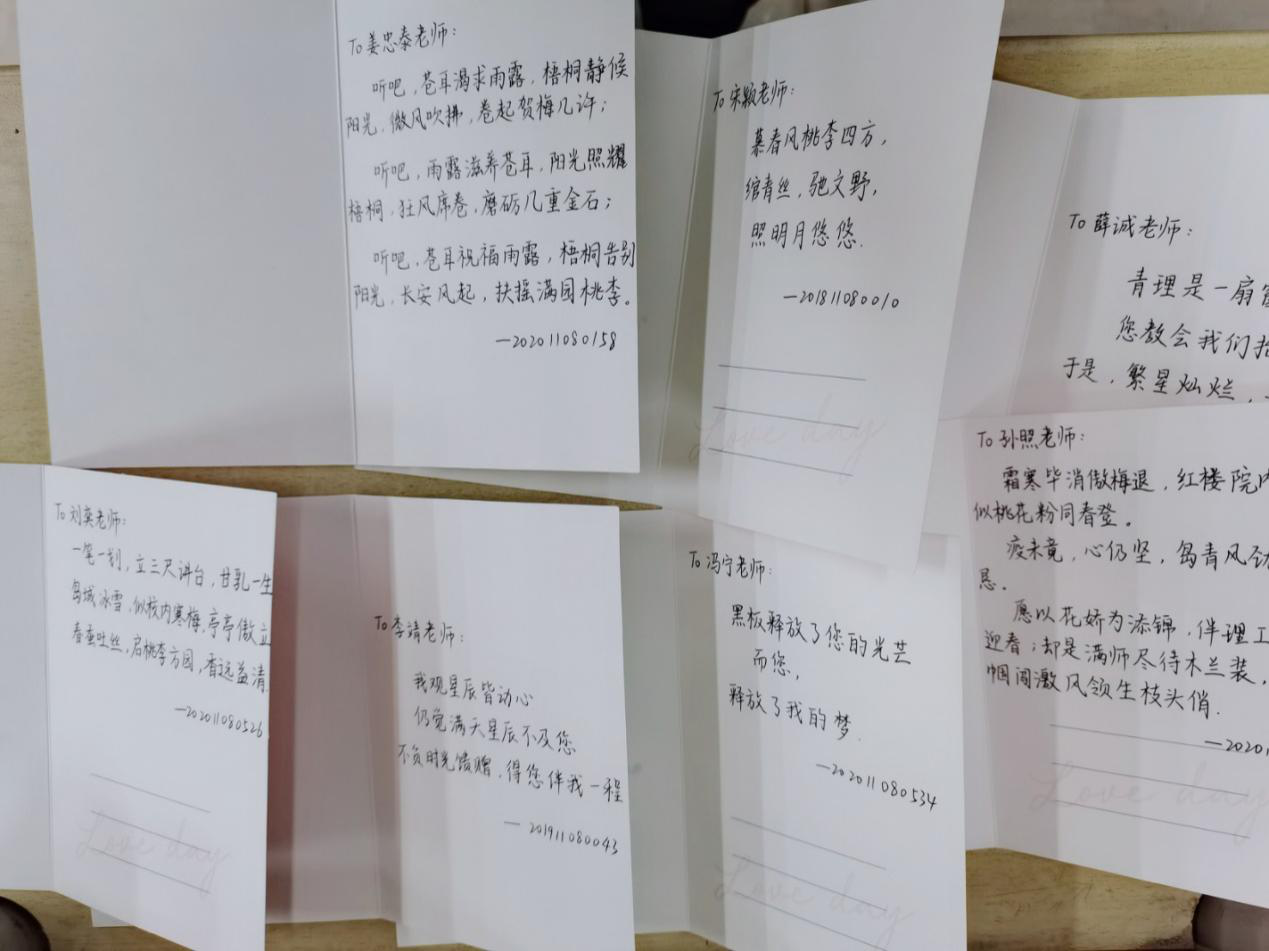 To 姜忠泰老师:
听吧,苍耳渴求雨露,梧桐静候
阳光,微风吹拂,卷起贺梅几许;
听吧,雨露滋养苍耳,阳光照耀
梧桐,狂风席卷,磨砺几重金石;
听吧,苍耳祝福雨露,梧桐告别
阳光,长安风起,扶摇满园桃李。
—202011080158
To 宋颖老师:
慕春风桃李四方,
绾青丝,驰文野,
照明月悠悠.
—201811080010
Love day
To 薛诚老师:
青理是一扇
您教会我们
于是,繁星灿烂,
To 刘英老师:
一笔一划,立三尺讲台,甘乳一生
岛城冰雪,似校内寒梅,亭亭傲立
春蚕吐丝,启桃李方园,香远益清.
—202011080526
Love day
To 李靖老师:
我观星辰皆动心
仍觉满天星辰不及您
不负时光馈赠,得您伴我一程
—201911080043
To 冯宁老师:
黑板释放了您的光芒
而您,
释放了我的梦.
—202011080534
Love day
To 孙照老师:
霜寒毕消傲梅退,红楼院内
似桃花粉同春登。
疫未竟,心仍坚,岛青风劲
恳。
愿以花娇为添锦,伴理工
迎春;却是满师尽待木兰装,
帼闯激风领生枝头俏.
—2020
Love day